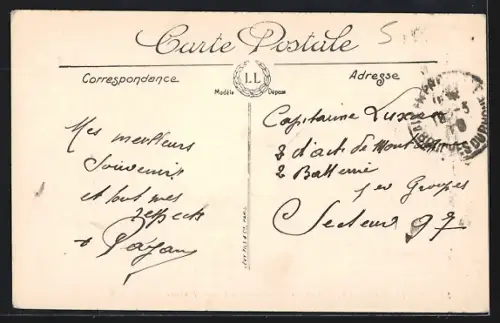 Carte Postale
Correspondance
LL
Modèle Déposé
Adresse
Mes meilleurs
Souvenirs
et tout mes
respects
Payan
Capitaine
d'art de Mont
2 Batterie
1er Groupes
Secteur 97